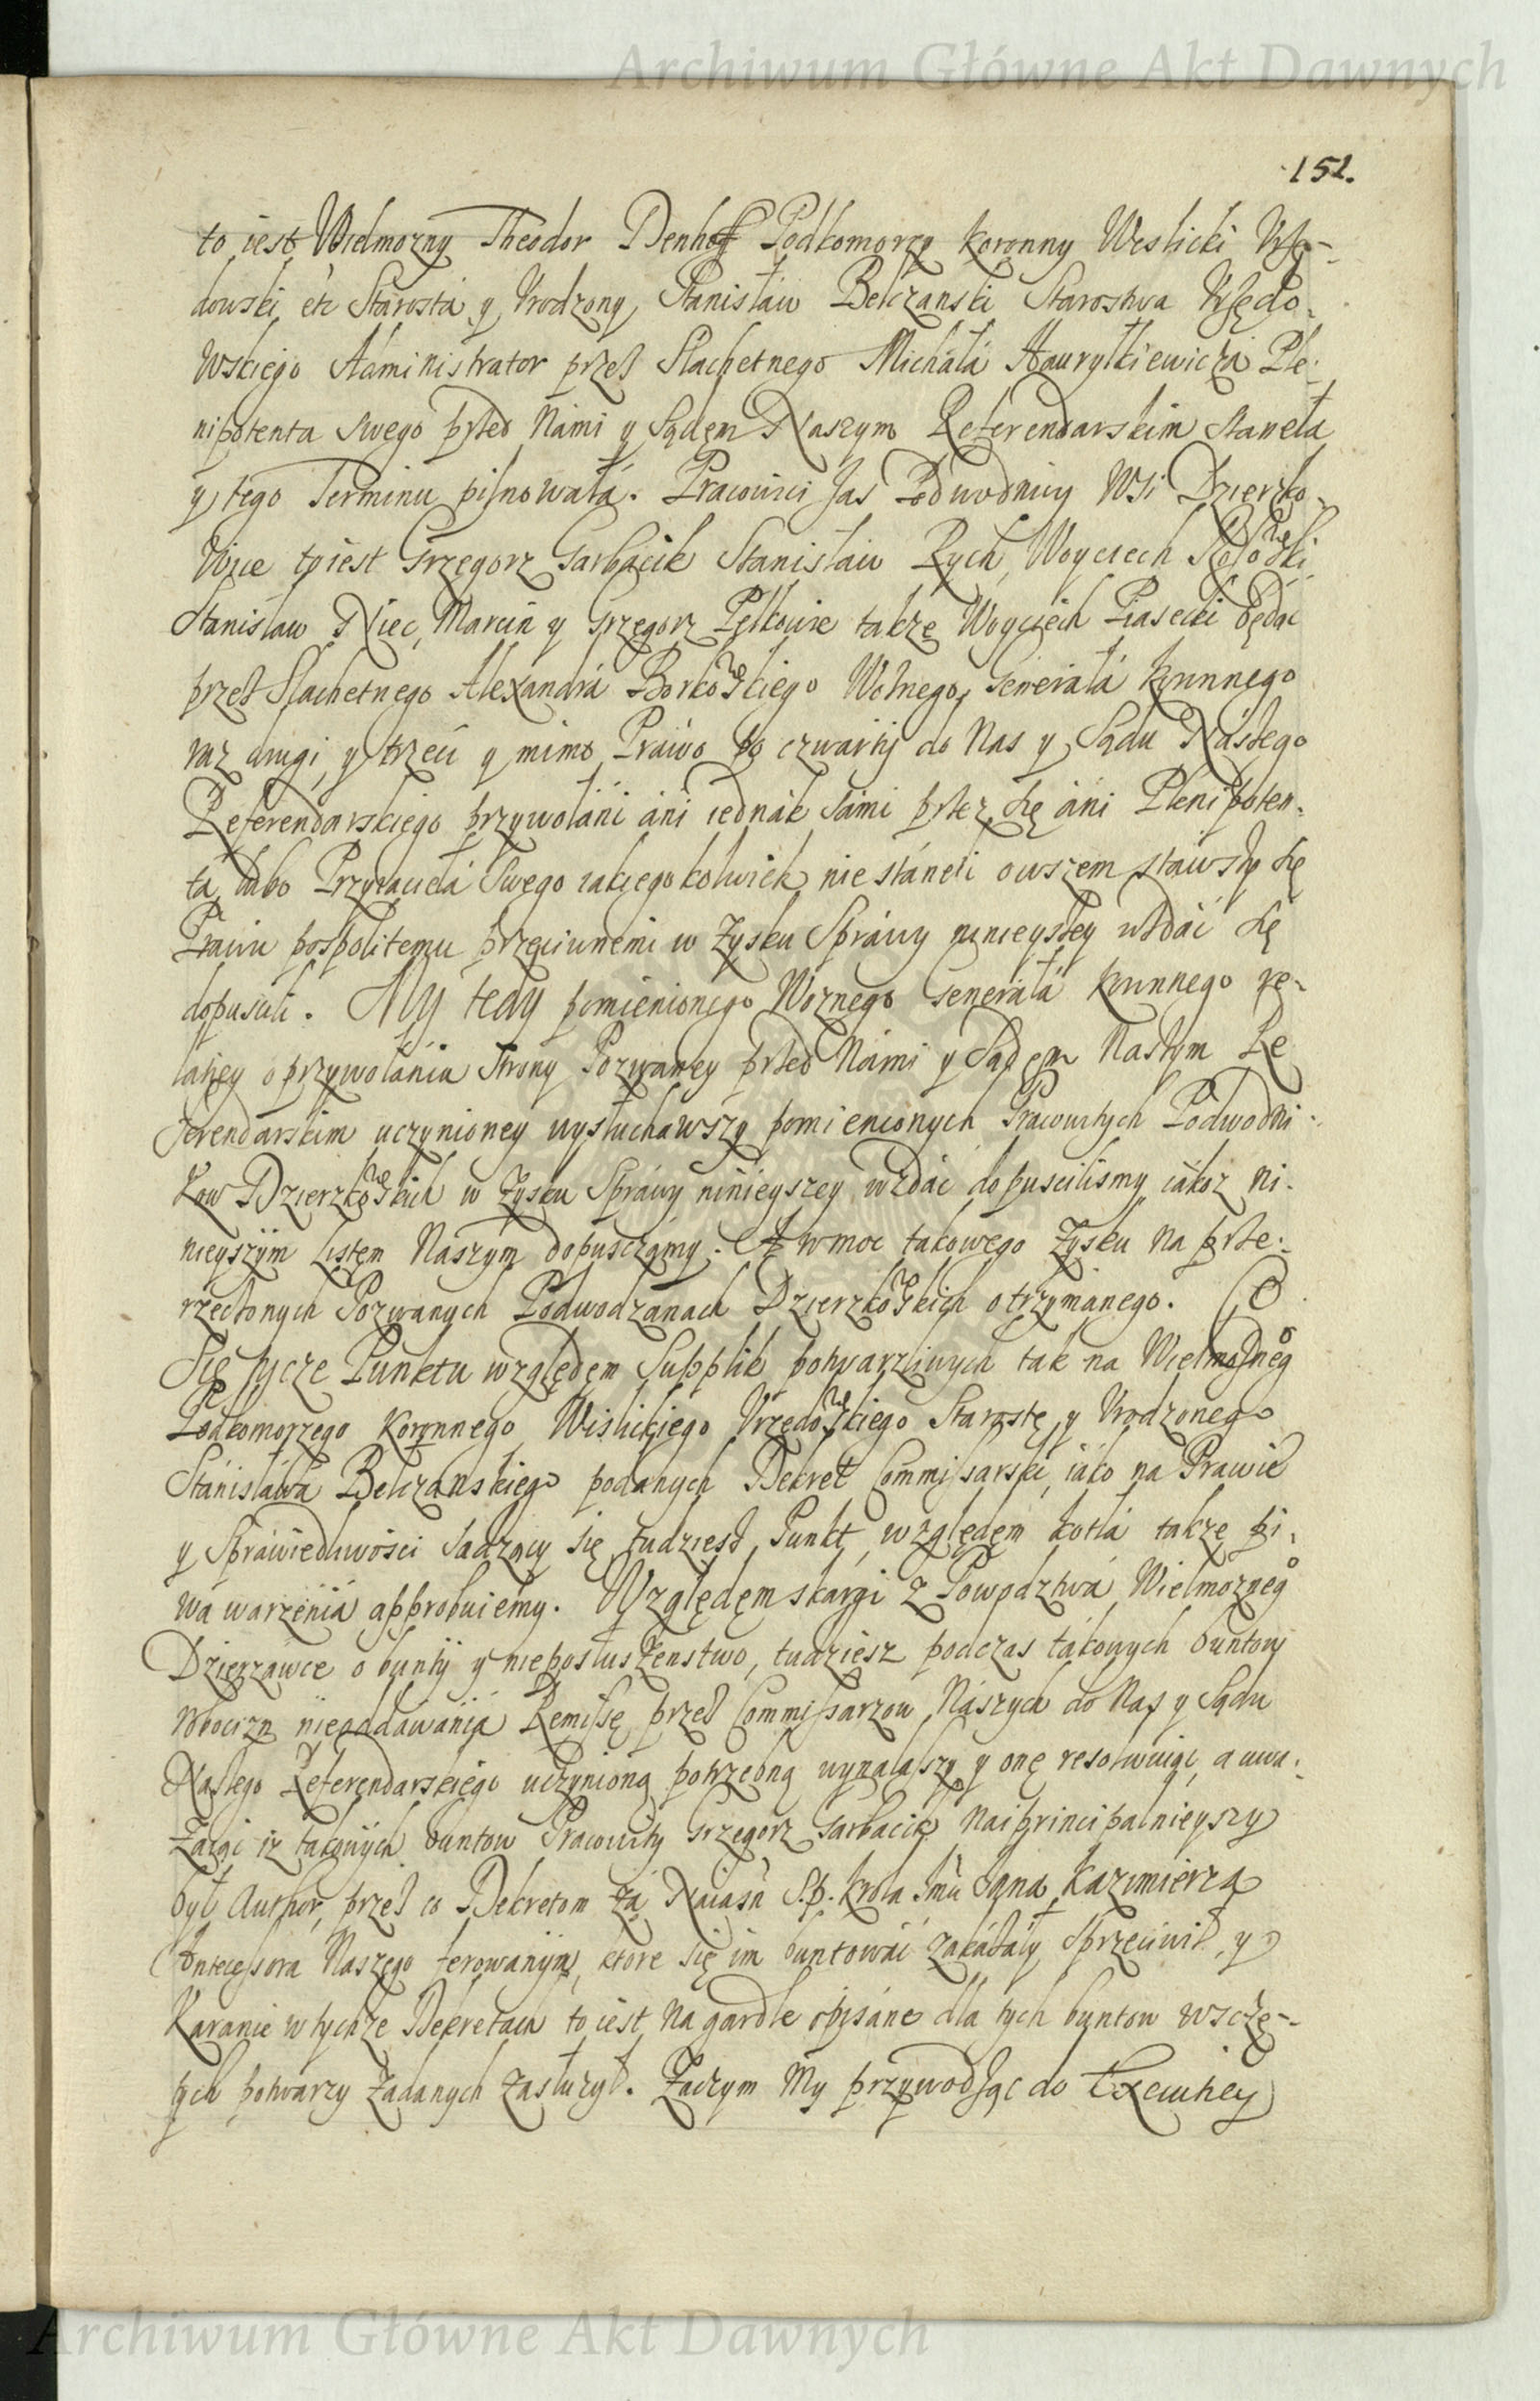 Archiwum Główne Akt Dawnych
152.
to iest Wielmozny Theodor Denhoff Podkomorzy Koronny Wislicki Vrzę-
dowski etc Starosta y Vrodzony Stanisław Belczanski Starostwa Vrzędo-
wskiego Administrator przez Slachetnego Michałá Hawryłkiewicza Ple-
nipotenta swego przed Nami y Sądem Naszym Referendarskim stanęła
y tego Terminu pilnowałá. Pracowici zas Podwodnicy Wsi Dzierzko-
wice to iest Grzegorz Garbacik Stanisław Rych, Woyciech
Stanisław Niec, Marcin y Grzegorz Pęlkowie takze Woyciech Piasecki będąc
przez Slachetnego Alexandrá Borkowskiego Woznego Generałá Koronnego
raz drugi y trzeci y mimo Prawo po czwarty do Nas y Sądu Nászego
Referendarskiego przywołáni áni iednák sámi przez się áni Plenipoten-
tá, lubo Przyiacielá swego iakiegokolwiek nie stáneli owszem stawszy się
Prawu pospolitemu przeciwnemi w Zysku Spráwy ninieyszey wzdáć się
dopuscili. My tedy pomienionego Woznego Generáłá Koronnego re-
latiey o przywołániu Strony Pozwaney przed Námi y Sądem Naszym Re
ferendarskim uczynioney wysłuchawszy pomienionych Pracowitych Podwodni-
kow Dzierzkowskich w Zysku Spráwy ninieyszey wzdáć dopuscilismy iákoz ni-
nieyszym Listem Naszym dopusczámy. A w moc takowego Zysku na prze-
rzeczonych Pozwanych Podwodzanach Dzierzkowskich otrzymánego. Co
się tycze Punktu względem Supplik potwarzliwych tak na Wielmoznego
Podkomorzego Koronnego Wislickiego Vrzędowskiego Starostę y Vrodzonego
Stánisłáwá Belczanskiego podanych Dekret Commissarski, iáko na Prawie
y Spráwiedliwości sadzący się, tudziesz Punkt względem kotłá takze pi-
wá warzeniá approbuiemy. Względem skargi z Powodztwá Wielmoznego
Dzierzawce o bunty y nieposłuszenstwo, tudziesz podczas tákowych buntow
robocizn nieoddawánia Remissę przez Commissarzow Nászych do Nas y Sądu
Naszego Referendarskiego uczynioną potrzebną wynalaszy y onę resolwuiąc, a uwa-
zaiąc iz takowych buntow Pracowity Grzegorz Garbacik naiprincipalnieyszy
był Author, przez co Dekretom zá Naiasn S.p. Krola Jmci Jana Kazimierza
Antecessora Naszego ferowanym, ktore się im buntowáć zakázáły sprzeciwił, y
Karanie w tychze Dekretach to iest na gardle opisáne dla tych buntow wsczę-
tych potwarzy zadanych zasłuzył. Zaczym My przywodząc do
Archiwum Główne Akt Dawnych